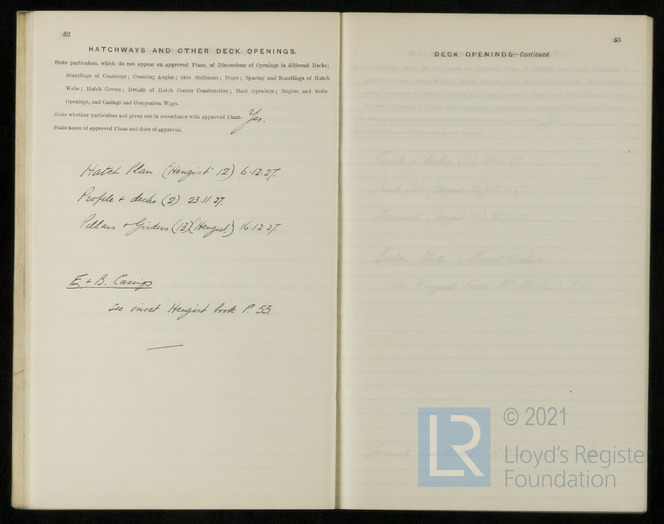 52
HATCHWAYS AND OTHER DECK OPENINGS.
State particulars, which do not appear on approved Plans, of Dimensions of Openings in different Decks;
Scantlings of Coamings; Coaming Angles; Side Stiffeners; Stays; Spacing and Scantlings of Hatch
Webs; Hatch Covers; Details of Hatch Corner Construction; Mast Openings; Engine and Boiler
Openings, and Casings and Companion Ways.
State whether particulars not given are in accordance with approved Plans. Yes.
State name of approved Plans and date of approval.
Hatch Plan (Hengist 12) 6.12.27.
Profile & decks (2) 23.11.27.
Pillars & Girders (13) (Hengist) 16.12.27.
E. & B. Casings
see inset Hengist book P. 53.
53
DECK OPENINGS—Continued.
LR
© 2021
Lloyd's Register
Foundation